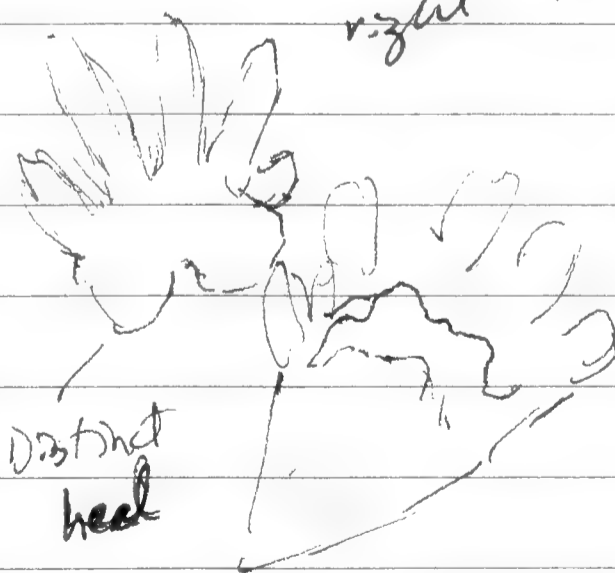 right
Distinct
heel